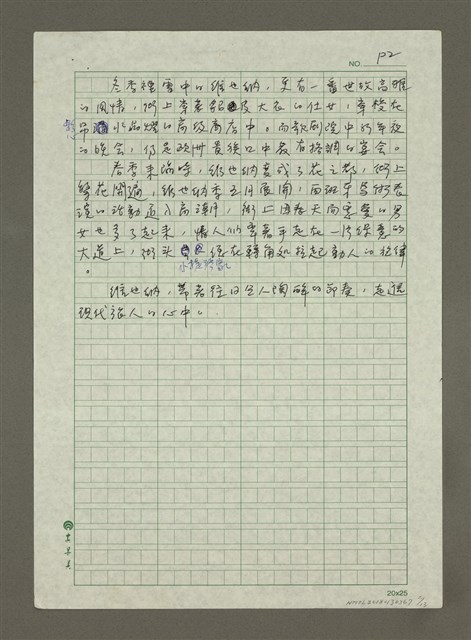 NO. P2
冬季裡雪中的維也納,更有一番世故高雅
的風情,街上穿著貂皮大衣的仕女,穿梭在
吊著水晶燈的高級商店中。而歌劇院中的年夜
的晚會,仍是歐洲最後口中最有格調的宴會。
春季來臨時,維也納變成了花之都,街上
繁花開滿,維也納季五月展開,西班牙馬術表
演的活動進入高潮,街上因春天而戀愛的男
女也多了起來,情人們牽著手走在一片綠意的
大道上,街頭小提琴家總在轉角處拉起動人的旋律
。
維也納,帶著往日令人陶醉的節奏,走進
現代旅人的心中。
20x25